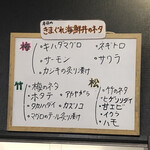 本日の
きまぐれ海鮮丼のネタ
梅
・キハダマグロ
・サーモン
・カジキの炙り漬け
・ネギトロ
・サワラ
竹
・梅のネタ
・ホタテ
・アカヤガラ
・タカハタイ
・カズノコ
・マグロのテール炙り漬け
松
・竹のネタ
・ヒゲソリダイ
・甘エビ
・イクラ
・ハモ